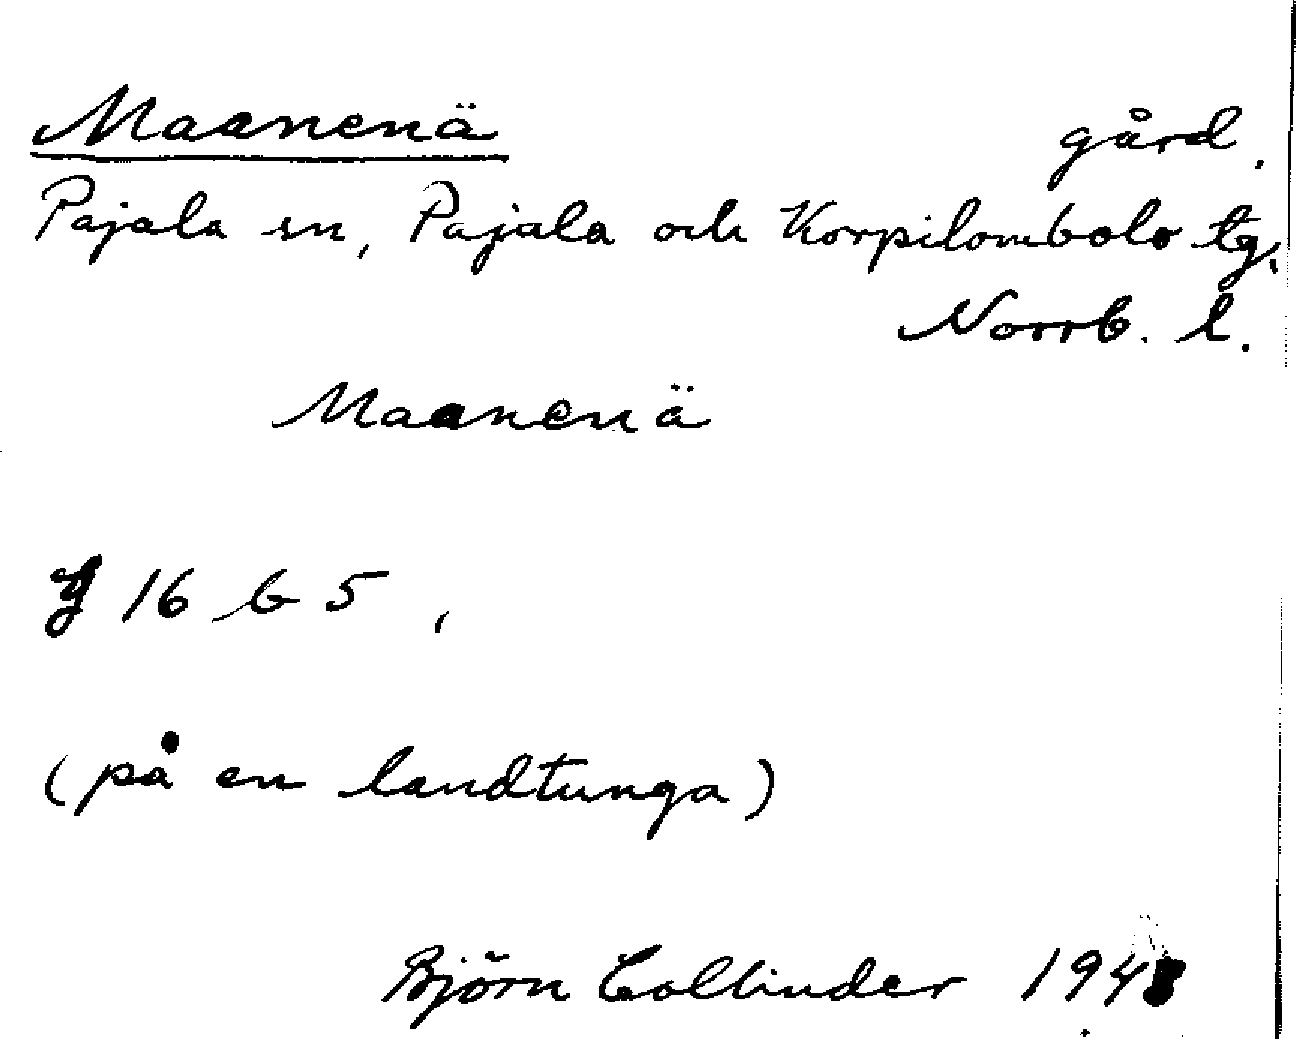 Maanenä gård.
Pajala sn, Pajala och Korpilombolo tg.
Norrb. l.
Maanenä
16 b 5,
(på en landtunga)
Björn Collinder